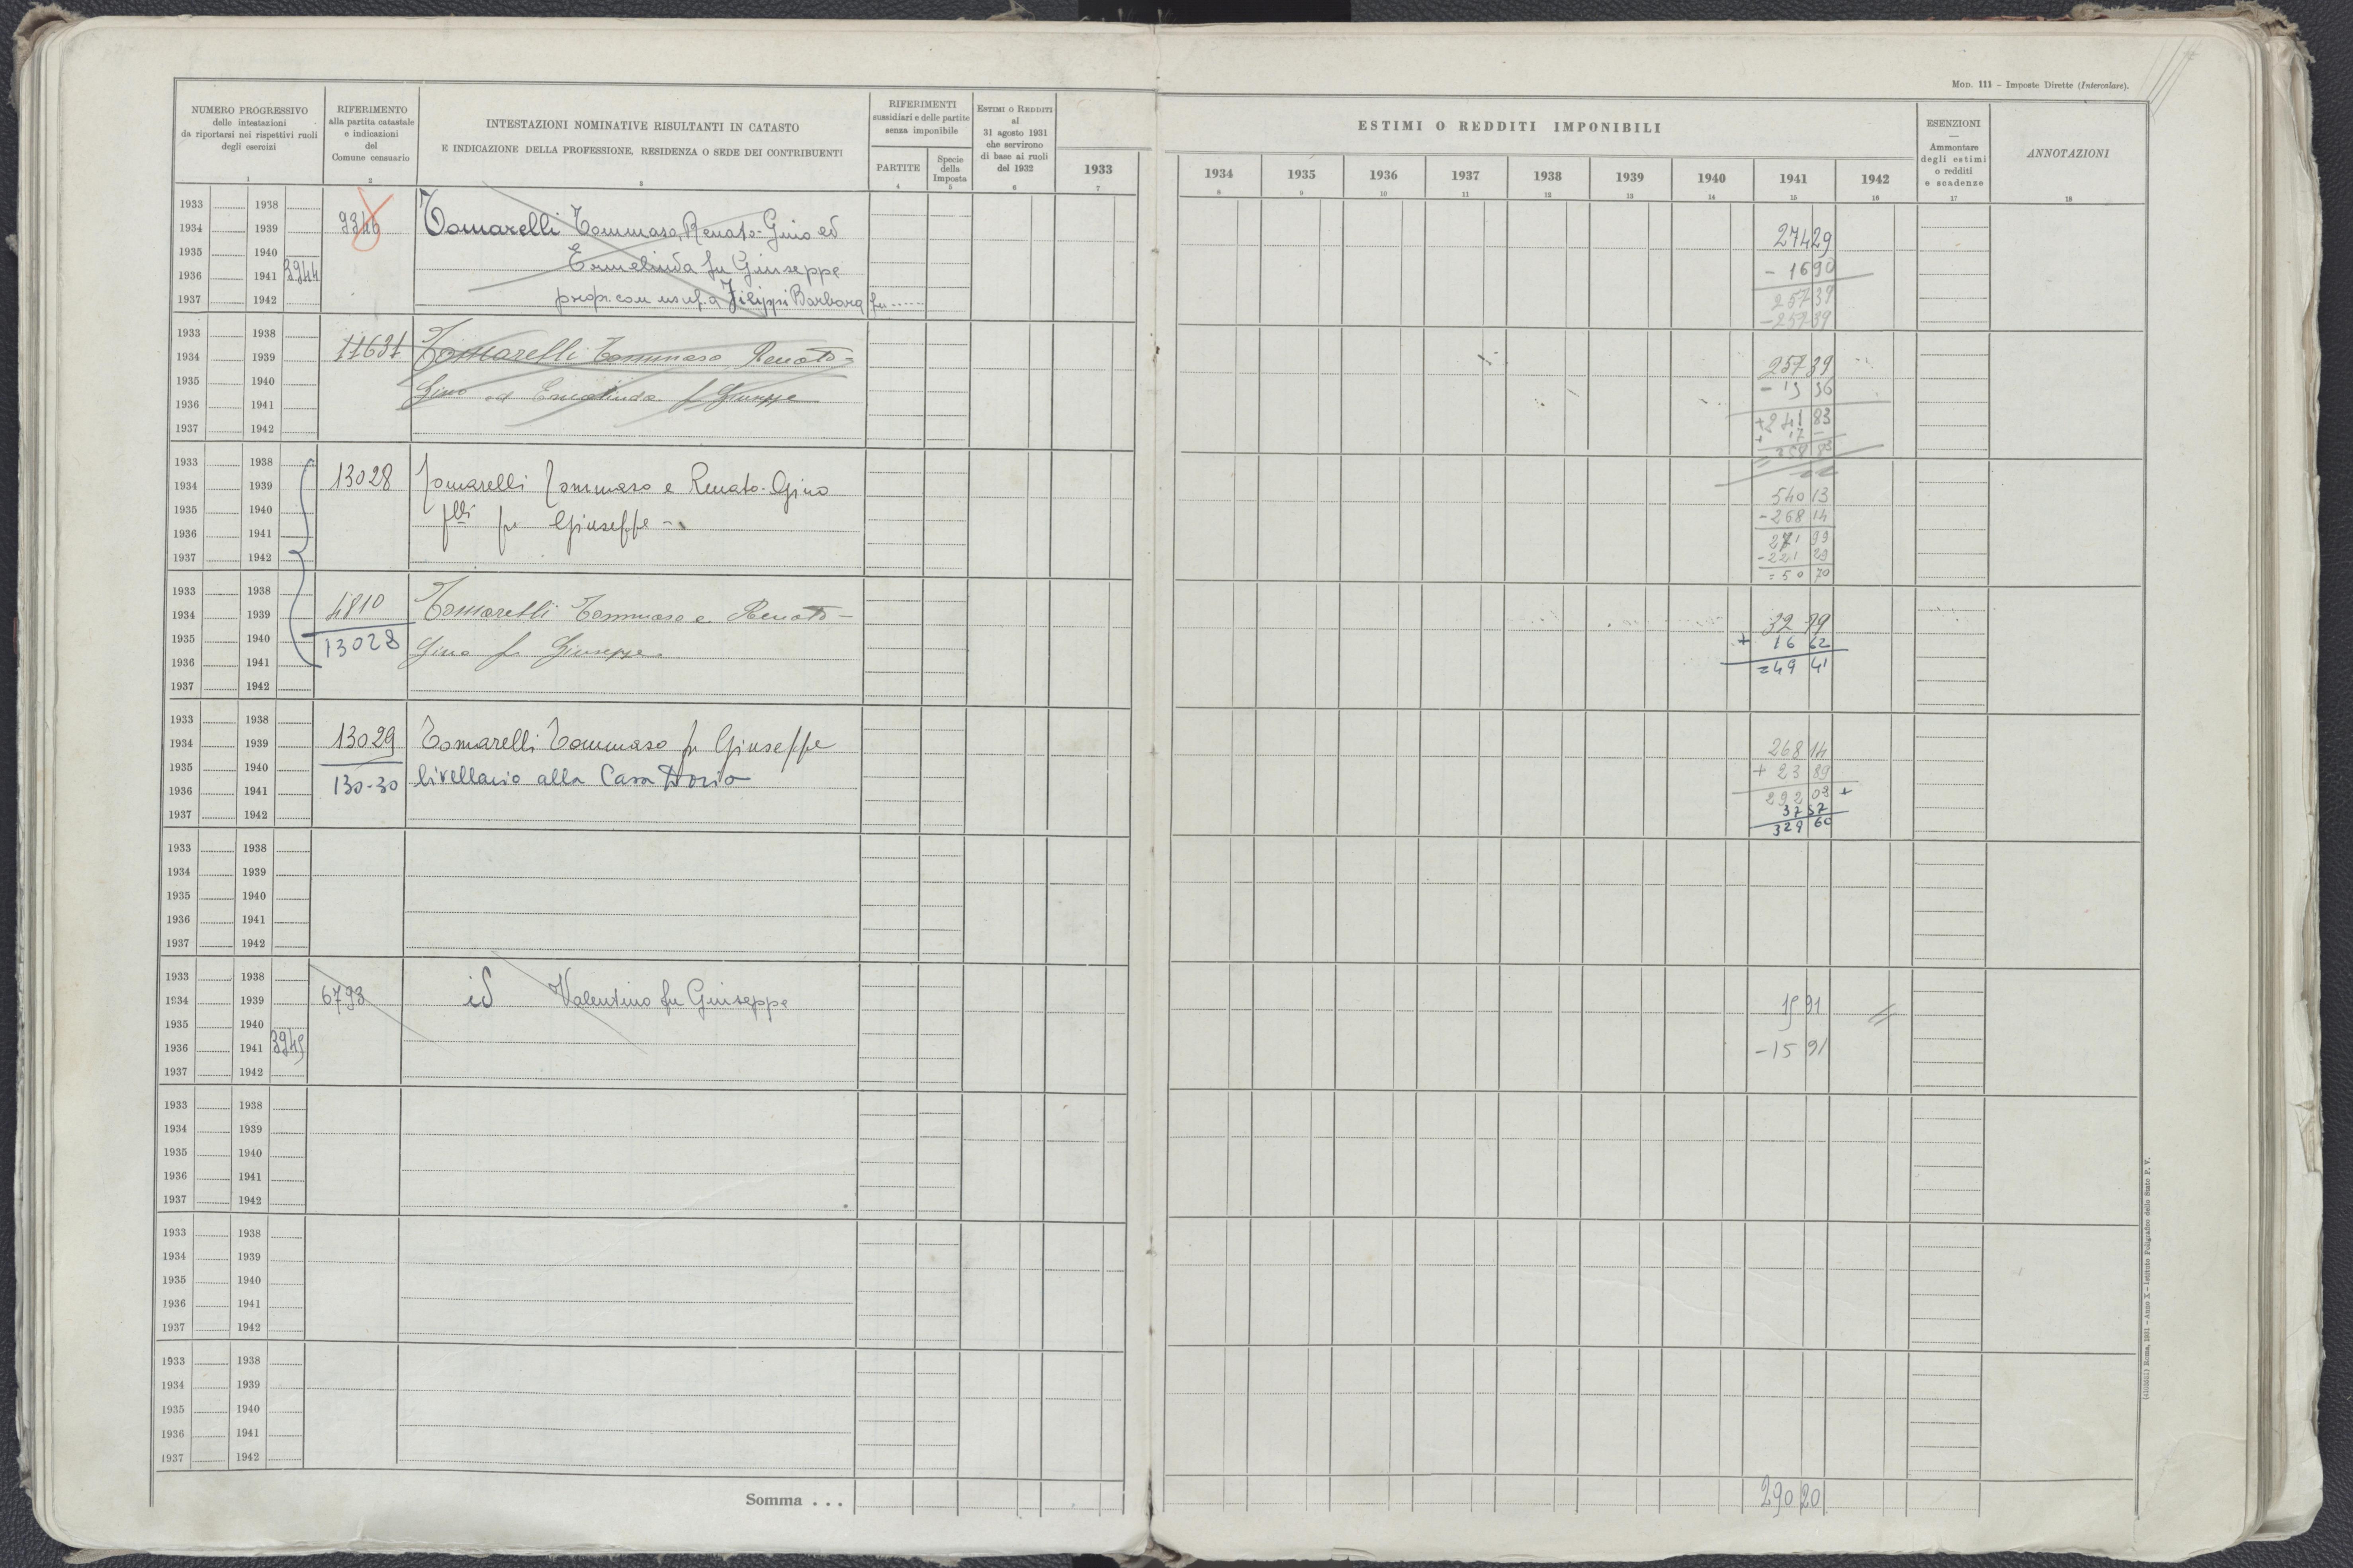 Mod. 111 – Imposte Dirette (Intercalare).
NUMERO PROGRESSIVO
delle intestazioni
da riportarsi nei rispettivi ruoli
degli esercizi
1
RIFERIMENTO
alla partita catastale
e indicazioni
del
Comune censuario
2
INTESTAZIONI NOMINATIVE RISULTANTI IN CATASTO
E INDICAZIONE DELLA PROFESSIONE, RESIDENZA O SEDE DEI CONTRIBUENTI
3
RIFERIMENTI
sussidiari e delle partite
senza imponibile
PARTITE
4
Specie
della
Imposta
5
Estimi o Redditi
al
31 agosto 1931
che servirono
di base ai ruoli
del 1932
6
ESTIMI O REDDITI IMPONIBILI
1933 1934 1935 1936 1937 1938 1939 1940 1941 1942
7 8 9 10 11 12 13 14 15 16
ESENZIONI
—
Ammontare
degli estimi
o redditi
e scadenze
17
ANNOTAZIONI
18
1933 1938
1934 1939 9346 Tomarelli Tommaso, Renato-Gino ed 274 29
1935 1940 Ermelinda fu Giuseppe
1936 1941 3944 - 16 90
1937 1942 propr. con usuf. a Filippi Barbara fu ......
257 39
- 257 39
1933 1938
1934 1939 11631 Tomarelli Tommaso, Renato= 257 39
1935 1940 Gino ed Ermelinda fu Giuseppe
1936 1941
1937 1942
+ 241 83
+ 17 -
1933 1938
1934 1939 13028 Tomarelli Tommaso e Renato-Gino 540 13
1935 1940 flli fu Giuseppe - - 268 14
1936 1941 271 99
1937 1942 - 221 29
= 50 70
1933 1938
1934 1939 4810 Tomarelli Tommaso e Renato- 32 79
1935 1940 13028 Gino fu Giuseppe + 16 62
1936 1941 = 49 41
1937 1942
1933 1938
1934 1939 13029 Tomarelli Tommaso fu Giuseppe 268 14
1935 1940 130-30 livellario alla Casa Doria + 23 89
1936 1941 292 03 +
1937 1942 37 57
329 60
1933 1938
1934 1939
1935 1940
1936 1941
1937 1942
1933 1938
1934 1939 6793 id Valentino fu Giuseppe 15 91
1935 1940
1936 1941 3945 - 15 91
1937 1942
1933 1938
1934 1939
1935 1940
1936 1941
1937 1942
1933 1938
1934 1939
1935 1940
1936 1941
1937 1942
1933 1938
1934 1939
1935 1940
1936 1941
1937 1942
Somma . . . 290 20
(4103351) Roma, 1931 – Anno X – Istituto Poligrafico dello Stato P. V.